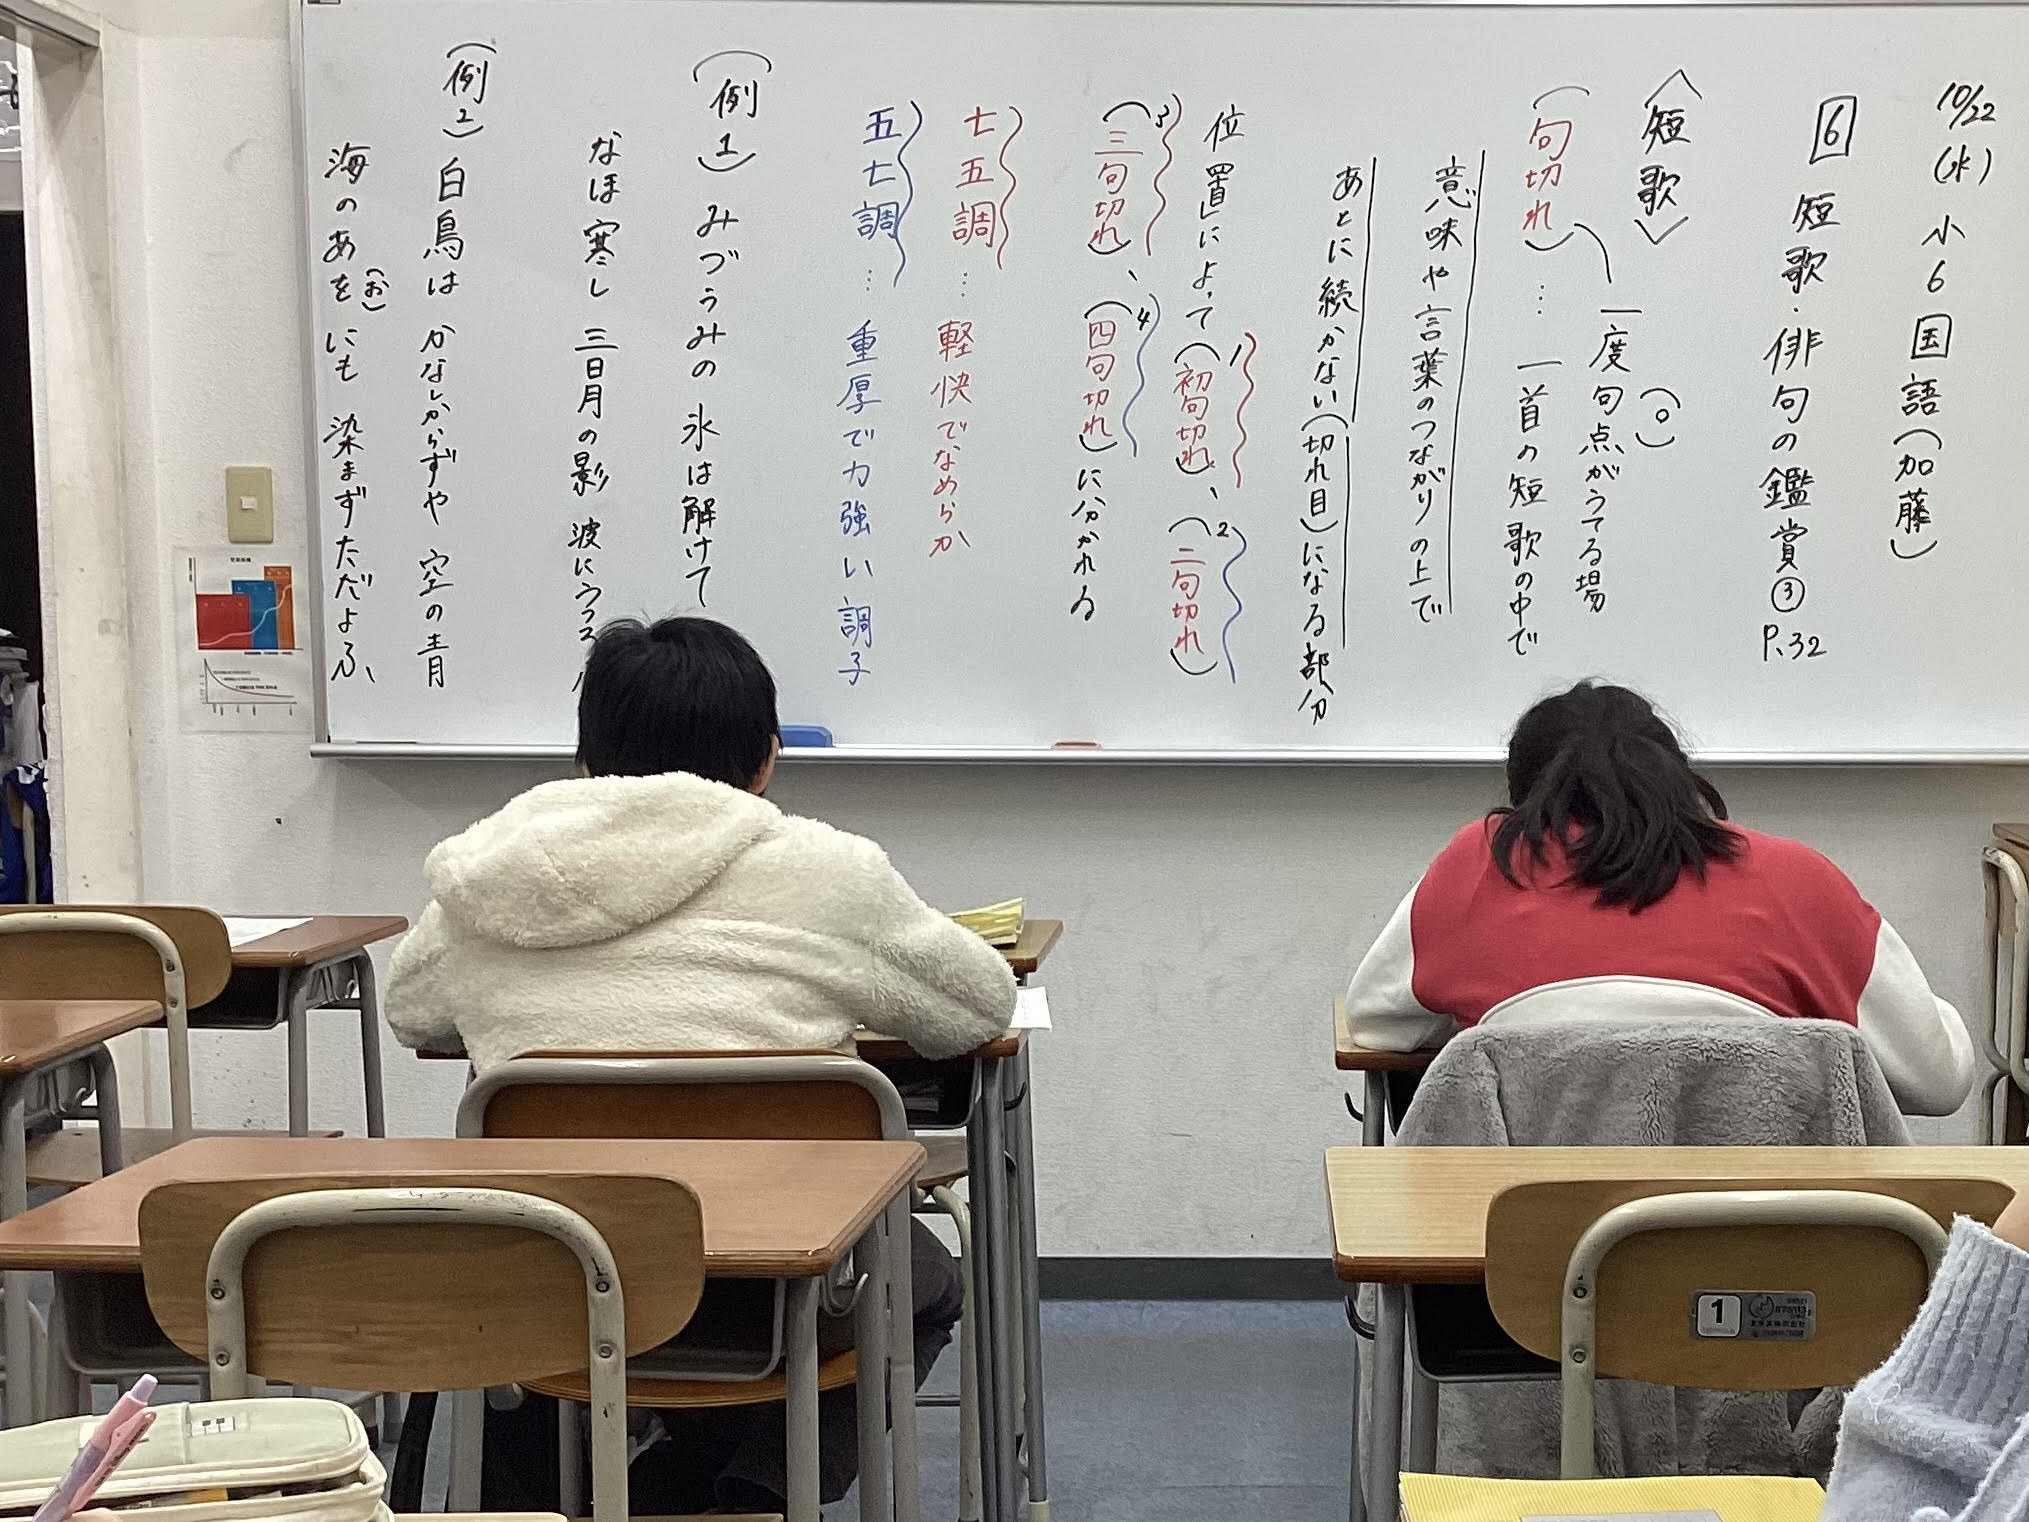 10/22(水)小6国語(加藤)
6 短歌・俳句の鑑賞③ P.32
〈短歌〉
一度句点(。)がうてる場
(句切れ)… 一首の短歌の中で
意味や言葉のつながりの上で
あとに続かない(切れ目)になる部分
位置によって(初句切れ)1、(二句切れ)2
(三句切れ)3、(四句切れ)4に分かれる
七五調…軽快でなめらか
五七調…重厚で力強い調子
(例1)みづうみの 氷は解けて
なほ寒し 三日月の影 波にうつ
(例2)白鳥は かなしからずや 空の青
海のあを(お)にも 染まずただよふ、
1